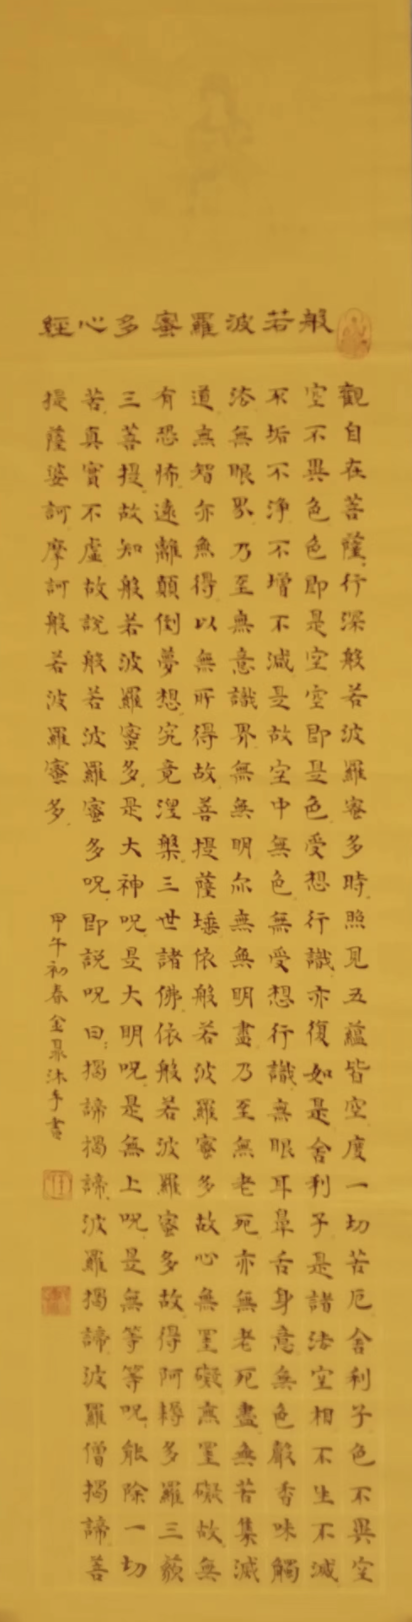 般若波羅蜜多心經
觀自在菩薩行深般若波羅蜜多時照見五蘊皆空度一切苦厄舍利子色不異空
空不異色色即是空空即是色受想行識亦復如是舍利子是諸法空相不生不滅
不垢不淨不增不減是故空中無色無受想行識無眼耳鼻舌身意無色聲香味觸
法無眼界乃至無意識界無無明亦無無明盡乃至無老死亦無老死盡無苦集滅
道無智亦無得以無所得故菩提薩埵依般若波羅蜜多故心無罣礙無罣礙故無
有恐怖遠離顛倒夢想究竟涅槃三世諸佛依般若波羅蜜多故得阿耨多羅三藐
三菩提故知般若波羅蜜多是大神呪是大明呪是無上呪是無等等呪能除一切
苦真實不虛故說般若波羅蜜多呪即說呪曰揭諦揭諦波羅揭諦波羅僧揭諦菩
提薩婆訶摩訶般若波羅蜜多
甲午初春金沐手書